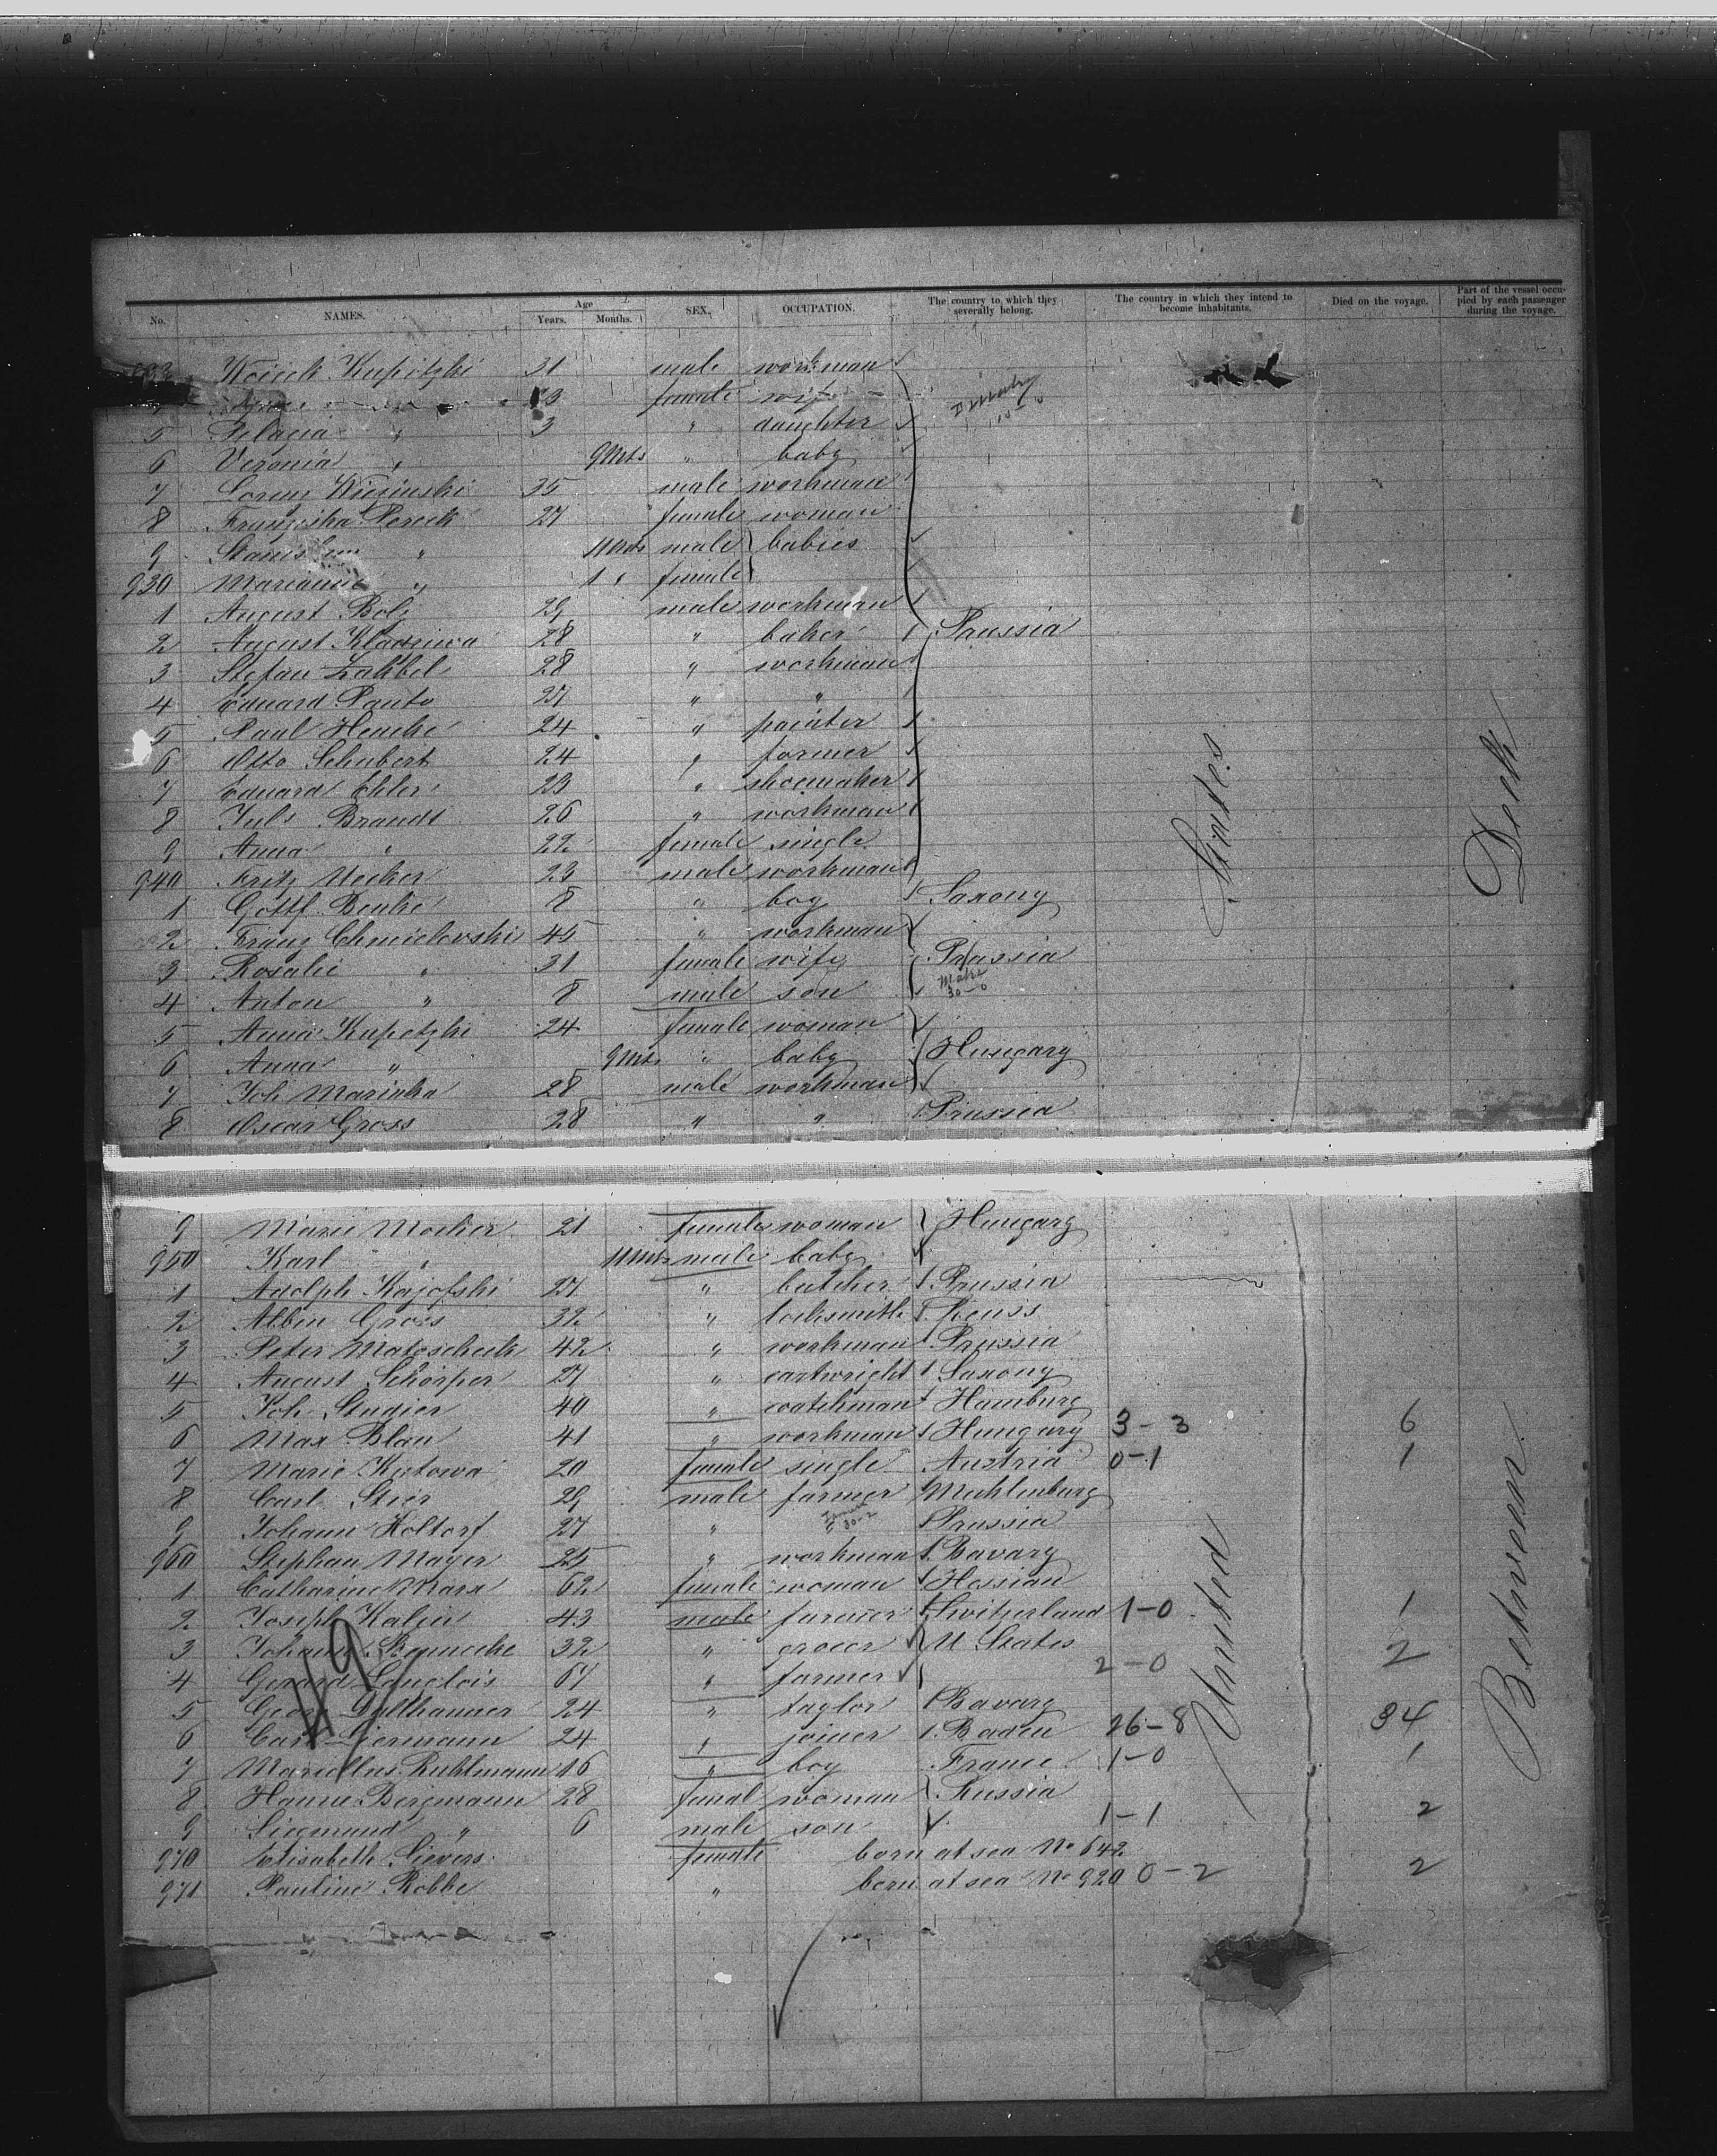 No. NAMES. Age Years. Months. SEX. OCCUPATION. The country to which they severally belong. The country in which they intend to become inhabitants. Died on the voyage. Part of the vessel occupied by each passenger during the voyage.
Kupitzki 31 male workman
female wife
5 Pelagia " 3 " daughter
6 Veronia " 9 Mts " baby
7 Lorenz 35 male workman
8 27 female woman
9 " 11 Mts male babies
930 Marianne " 1 " female
1 August Bolz 29 male workman
2 August 28 " baker Prussia
3 Stefan 28 " workman
4 Eduard 27 " "
5 Paul Hencke 24 " painter
6 Otto Schubert 24 " farmer
7 Eduard Ehler 23 " shoemaker
8 Juls Brandt 26 " workman
9 Anna " 22 female single
940 Fritz 23 male workman
1 Gottf. Benke 8 " boy Saxony
2 Franz Chmielevski 45 " workman
3 Rosalie " 31 female wife Prussia
4 Anton " 8 male son 30-0
5 Anna Kupetzki 24 female woman
6 Anna " 9 Mts " baby Hungary
7 Joh Marinka 28 male workman
8 Oscar Gross 28 " " Prussia
States
Deck
9 Marie Mocker 21 female woman Hungary
950 Karl " 11 Mts male baby
1 Adolph 27 " butcher Prussia
2 Albin Gross 32 " locksmith Reuss
3 Peter Matoscheck 42 " workman Prussia
4 August Schörper 27 " cartwright Saxony
5 Joh. Studier 40 " watchman Hamburg
6 Max Blau 41 " workman Hungary 3-3 6
7 Marie Kutowa 20 female single Austria 0-1 1
8 Carl Stier 29 male farmer Mecklenburg
9 Johann Holtorf 27 " 30-2 Prussia
960 Stephan Mayer 25 " workman Bavary
1 Catharine Marx 62 female woman Hessian
2 Joseph Kalin 43 male farmer Switzerland 1-0 1
3 Johann 32 " grocer U States
4 Gerard Langlois 67 " farmer 2-0 2
5 24 " taylor Bavary
6 24 " joiner Baden 26-8 34
7 Marcellus Ruhlmann 16 " boy France 1-0 1
8 Hanne Bergmann 28 femal woman Russia
9 Siegmund " 6 male son 1-1 2
970 Elisabeth Sievers female born at sea No 642
971 Pauline Robbe " born at sea No 920 0-2 2
United
Between